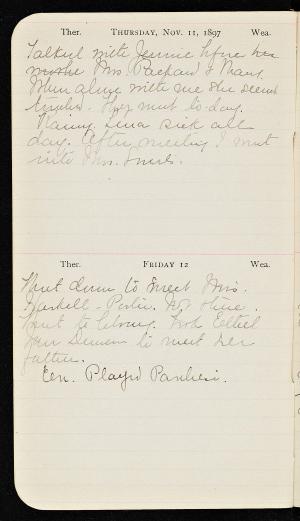 Ther. THURSDAY, NOV. 11, 1897 Wea.
Talked with Jennie before her
Mrs. Packard & Mary.
When alone with me she seems
They went to day.
Rainy. Lena sick all
day. After meeting I went
into Mrs.
Ther. FRIDAY 12 Wea.
Went down to meet Mrs.
Haskell -
Went to library. Took Ethel
Van Deusen to meet her
father.
Eve. Play'd Parchesi.